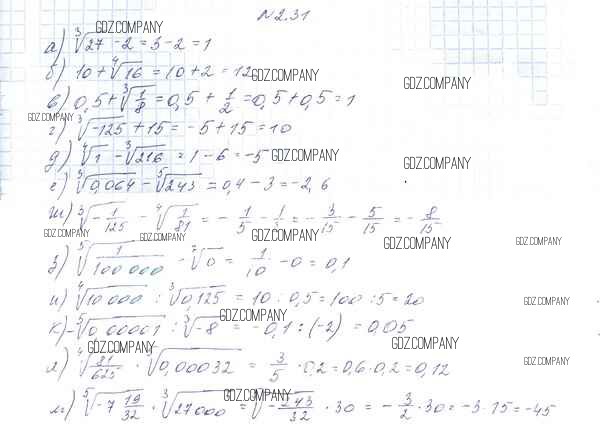 N2.31
GDZ.COMPANY
а) ∛27 - 2 = 3 - 2 = 1
б) 10 + ∜16 = 10 + 2 = 12 GDZ.COMPANY
GDZ.COMPANY
в) 0,5 + ∛(1/8) = 0,5 + 1/2 = 0,5 + 0,5 = 1
GDZ.COMPANY
г) ∛-125 + 15 = -5 + 15 = 10
д) ∜1 - ∛216 = 1 - 6 = -5 GDZ.COMPANY
GDZ.COMPANY
е) ∛0,064 - ⁵√243 = 0,4 - 3 = -2,6
ж) ∛(-1/125) - ∜(1/81) = -1/5 - 1/3 = -3/15 - 5/15 = -8/15
GDZ.COMPANY GDZ.COMPANY GDZ.COMPANY GDZ.COMPANY GDZ.COMPANY
з) ⁵√(1/100 000) - ⁷√0 = 1/10 - 0 = 0,1
и) ∜10 000 : ∛0,125 = 10 : 0,5 = 100 : 5 = 20
GDZ.COMPANY
GDZ.COMPANY
к) -⁵√0,00001 : ∛-8 = -0,1 : (-2) = 0,05
GDZ.COMPANY GDZ.COMPANY
л) ∜(81/625) · ⁵√0,00032 = 3/5 · 0,2 = 0,6 · 0,2 = 0,12
GDZ.COMPANY
GDZ.COMPANY
м) ⁵√(-7 19/32) · ∛27000 = ⁵√(-243/32) · 30 = -3/2 · 30 = -3 · 15 = -45